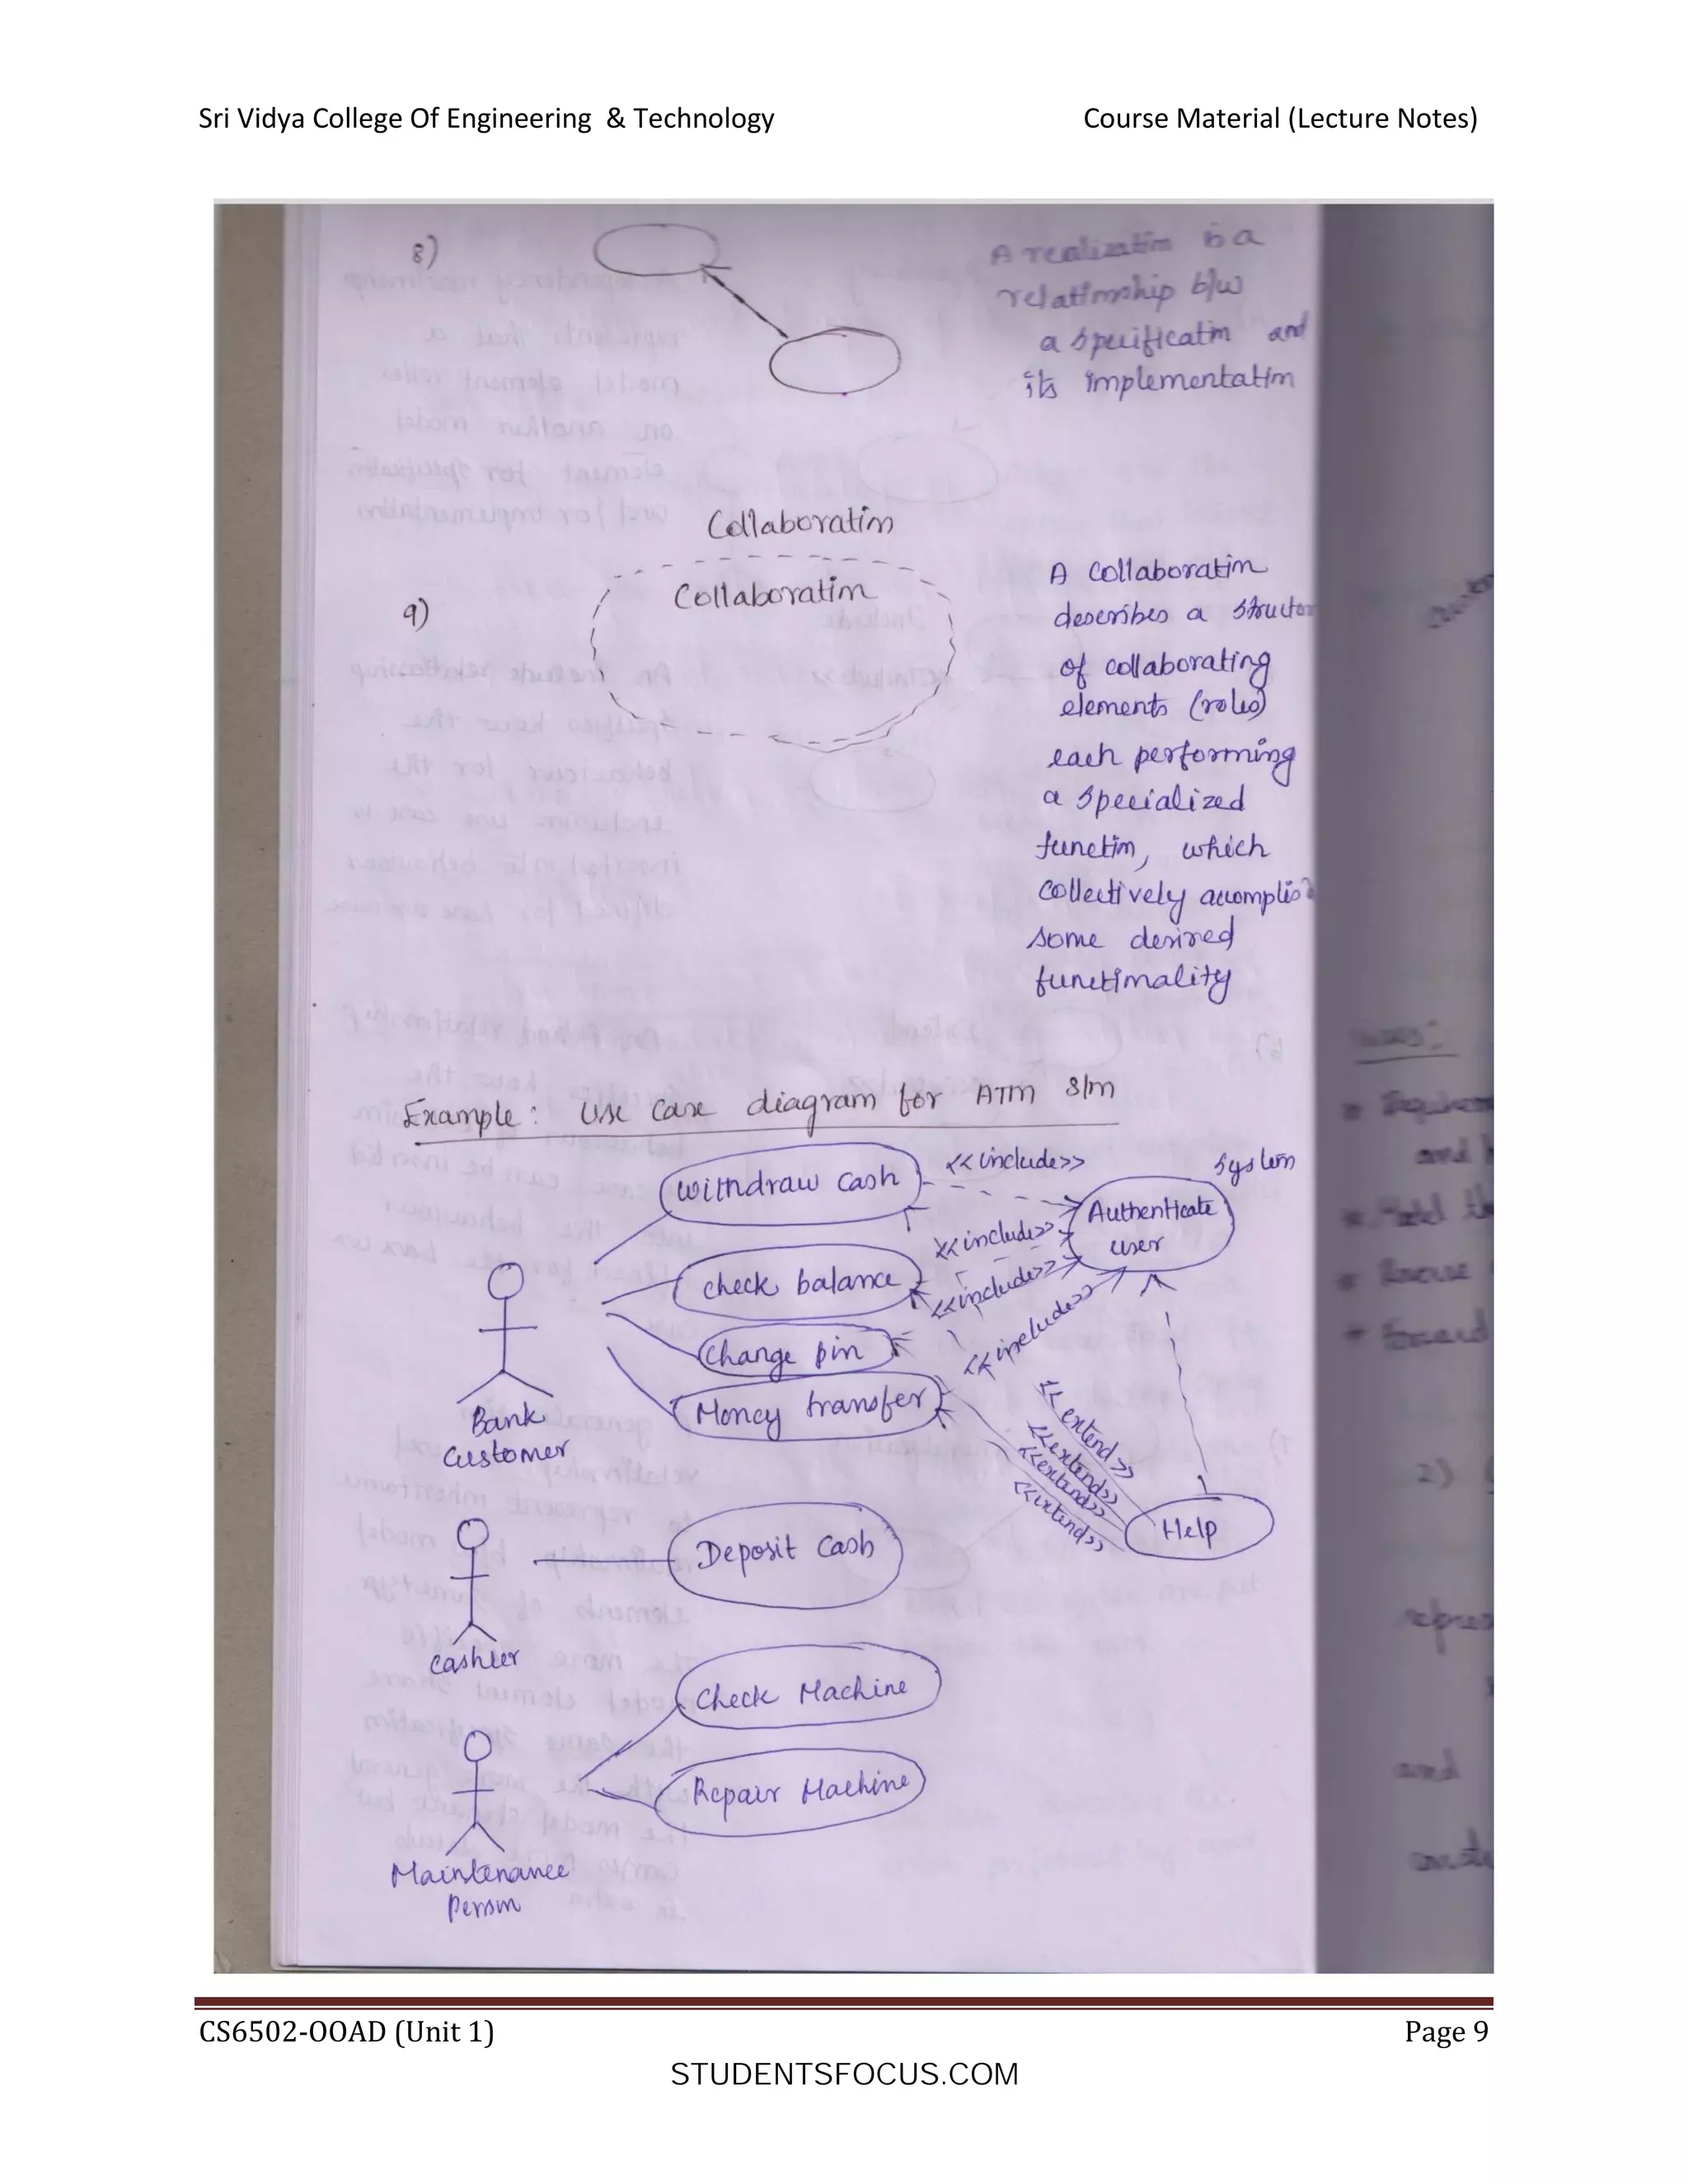 Sri Vidya College Of Engineering & Technology Course Material (Lecture Notes)
8)
A realization is a
relationship b/w
a specification and
its implementation
Collaboration
9)
Collaboration
A collaboration
describes a structor
of collaborating
elements (roles)
each performing
a specialized
function, which
collectively accomplis
some desired
functionality
Example : Use Case diagram for ATM s/m
System
Withdraw cash
<<include>>
Authenticate
user
<<include>>
check balance
<<include>>
Change pin
<<include>>
Money transfer
Bank
Customer
<<extend>>
<<extend>>
<<extend>>
<<extend>>
Help
Deposit Cash
cashier
Check Machine
Repair Machine
Maintenance
Person
2)
and
CS6502-OOAD (Unit 1) Page 9
STUDENTSFOCUS.COM